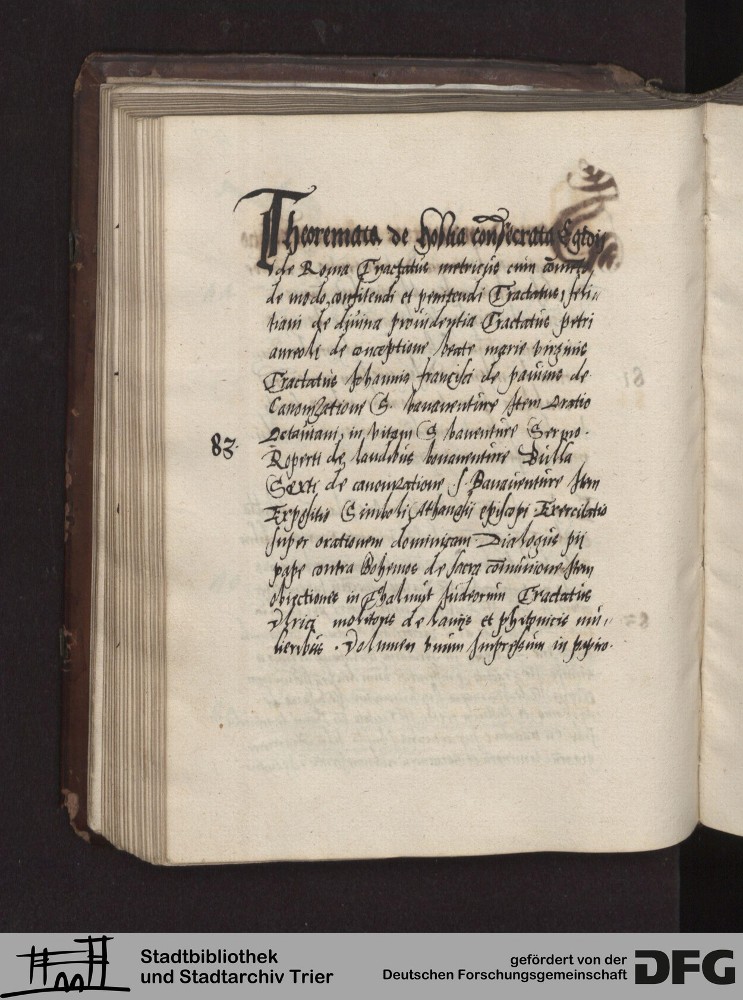 Theoremata de hostia consecrata Egidij
de Roma Tractatus metricus cum
de modo confitendi et penitendi Tractatus feli„
tiani de divina providentia Tractatus petri
aureoli de conceptione beate marie virginis
Tractatus Johannis francisci de pavinis de
Canonizatione S. bonaventure Item Oratio
Octaviani in vitam S. baventure Sermo.
83. Roperti de laudibus bonaventure Bulla
Sexti de canonizatione S. Bonaventure Item
Expositio Simboli Athanasij episcopi Exercitatio
super orationem dominicam Dialogus pij
pape contra Bohemos de sacra Item
obiectiones in Thalmut Judeorum Tractatus
Vlrici molitoris de lamijs et phitonicis mu„
lieribus. Volumen vnum Impressum in papiro.
Stadtbibliothek
und Stadtarchiv Trier
gefördert von der
Deutschen Forschungsgemeinschaft
DFG